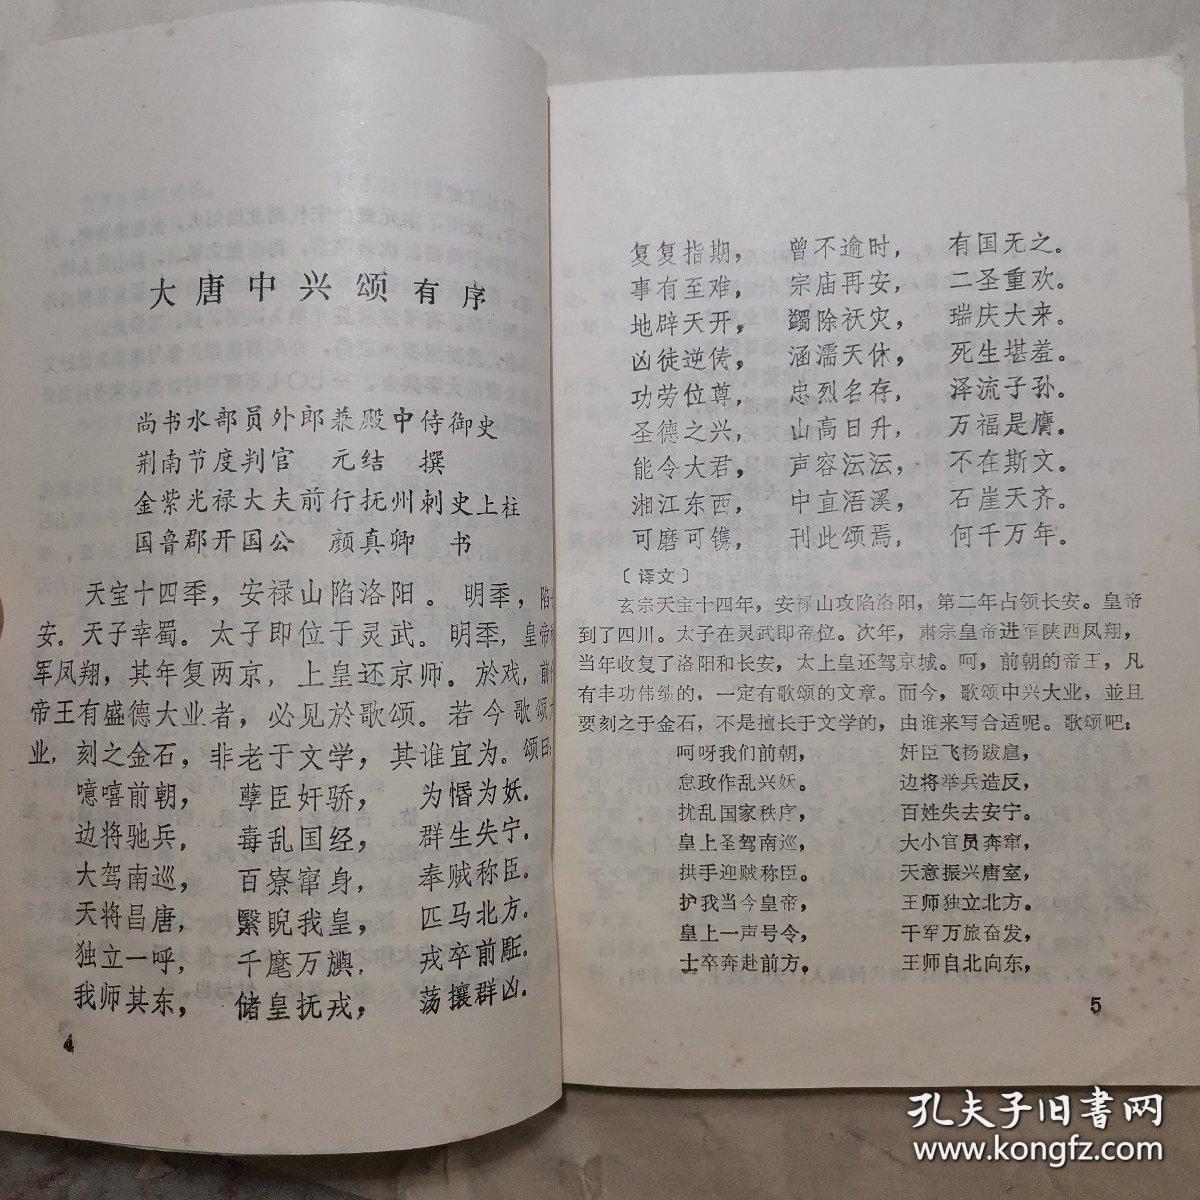 大唐中兴颂有序
尚书水部员外郎兼殿中侍御史
荆南节度判官 元结 撰
金紫光禄大夫前行抚州刺史上柱
国鲁郡开国公 颜真卿 书
天宝十四秊，安禄山陷洛阳。明秊，陷
安。天子幸蜀。太子即位于灵武。明秊，皇帝
军凤翔，其年复两京，上皇还京师。於戏，前
帝王有盛德大业者，必见於歌颂。若今歌颂
业，刻之金石，非老于文学，其谁宜为。颂曰：
噫嘻前朝，孽臣奸骄，为惛为妖．
边将驰兵，毒乱国经，群生失宁．
大驾南巡，百寮窜身，奉贼称臣．
天将昌唐，繄睨我皇，匹马北方．
独立一呼，千麾万旟，戎卒前驱．
我师其东，储皇抚戎，荡攘群凶．
4
复复指期，曾不逾时，有国无之。
事有至难，宗庙再安，二圣重欢。
地辟天开，蠲除祅灾，瑞庆大来。
凶徒逆俦，涵濡天休，死生堪羞。
功劳位尊，忠烈名存，泽流子孙。
圣德之兴，山高日升，万福是膺。
能令大君，声容沄沄，不在斯文。
湘江东西，中直浯溪，石崖天齐。
可磨可镌，刊此颂焉，何千万年。
〔译文〕
玄宗天宝十四年，安禄山攻陷洛阳，第二年占领长安。皇帝
到了四川。太子在灵武即帝位。次年，肃宗皇帝进军陕西凤翔，
当年收复了洛阳和长安，太上皇还驾京城。呵，前朝的帝王，凡
有丰功伟绩的，一定有歌颂的文章。而今，歌颂中兴大业，並且
要刻之于金石，不是擅长于文学的，由谁来写合适呢。歌颂吧：
呵呀我们前朝，奸臣飞杨跋扈，
怠政作乱兴妖。边将举兵造反，
扰乱国家秩序，百姓失去安宁。
皇上圣驾南巡，大小官员奔窜，
拱手迎贼称臣。天意振兴唐室，
护我当今皇帝，王师独立北方。
皇上一声号令，千军万旅奋发，
士卒奔赴前方，王师自北向东，
5
孔夫子旧书网
www.kongfz.com